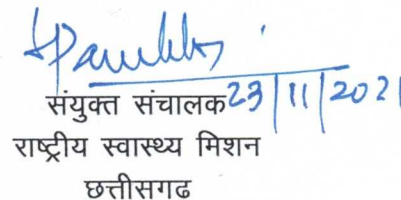 संयुक्त संचालक 23/11/2021
राष्ट्रीय स्वास्थ्य मिशन
छत्तीसगढ